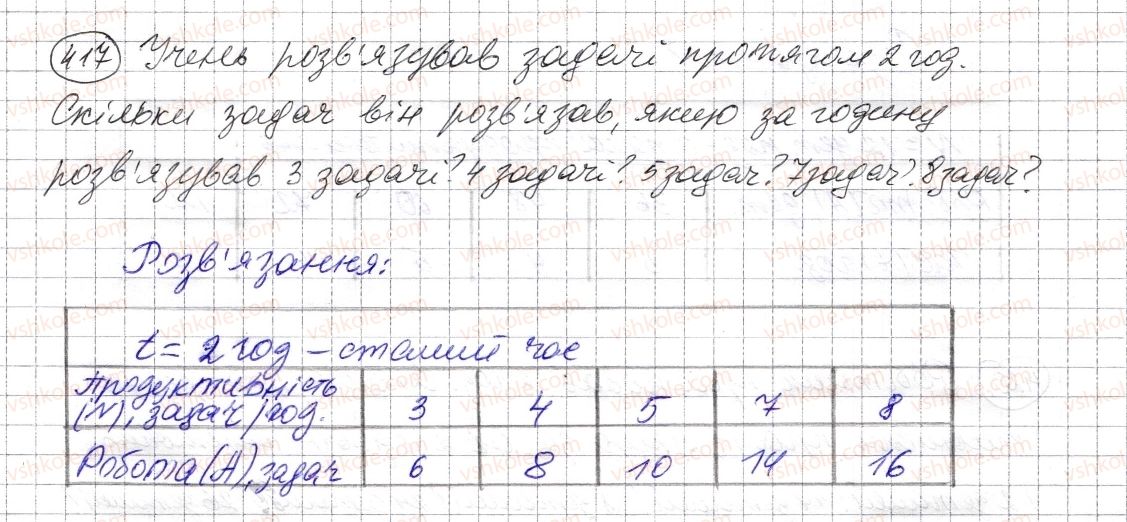 417 Учень розв'язував задачі протягом 2 год.
Скільки задач він розв'язав, якщо за годину
розв'язував 3 задачі? 4 задачі? 5 задач? 7 задач? 8 задач?
Розв'язання:
t = 2 год – сталий час
Продуктивність
(N), задач/год. 3 4 5 7 8
Робота (А), задач 6 8 10 14 16